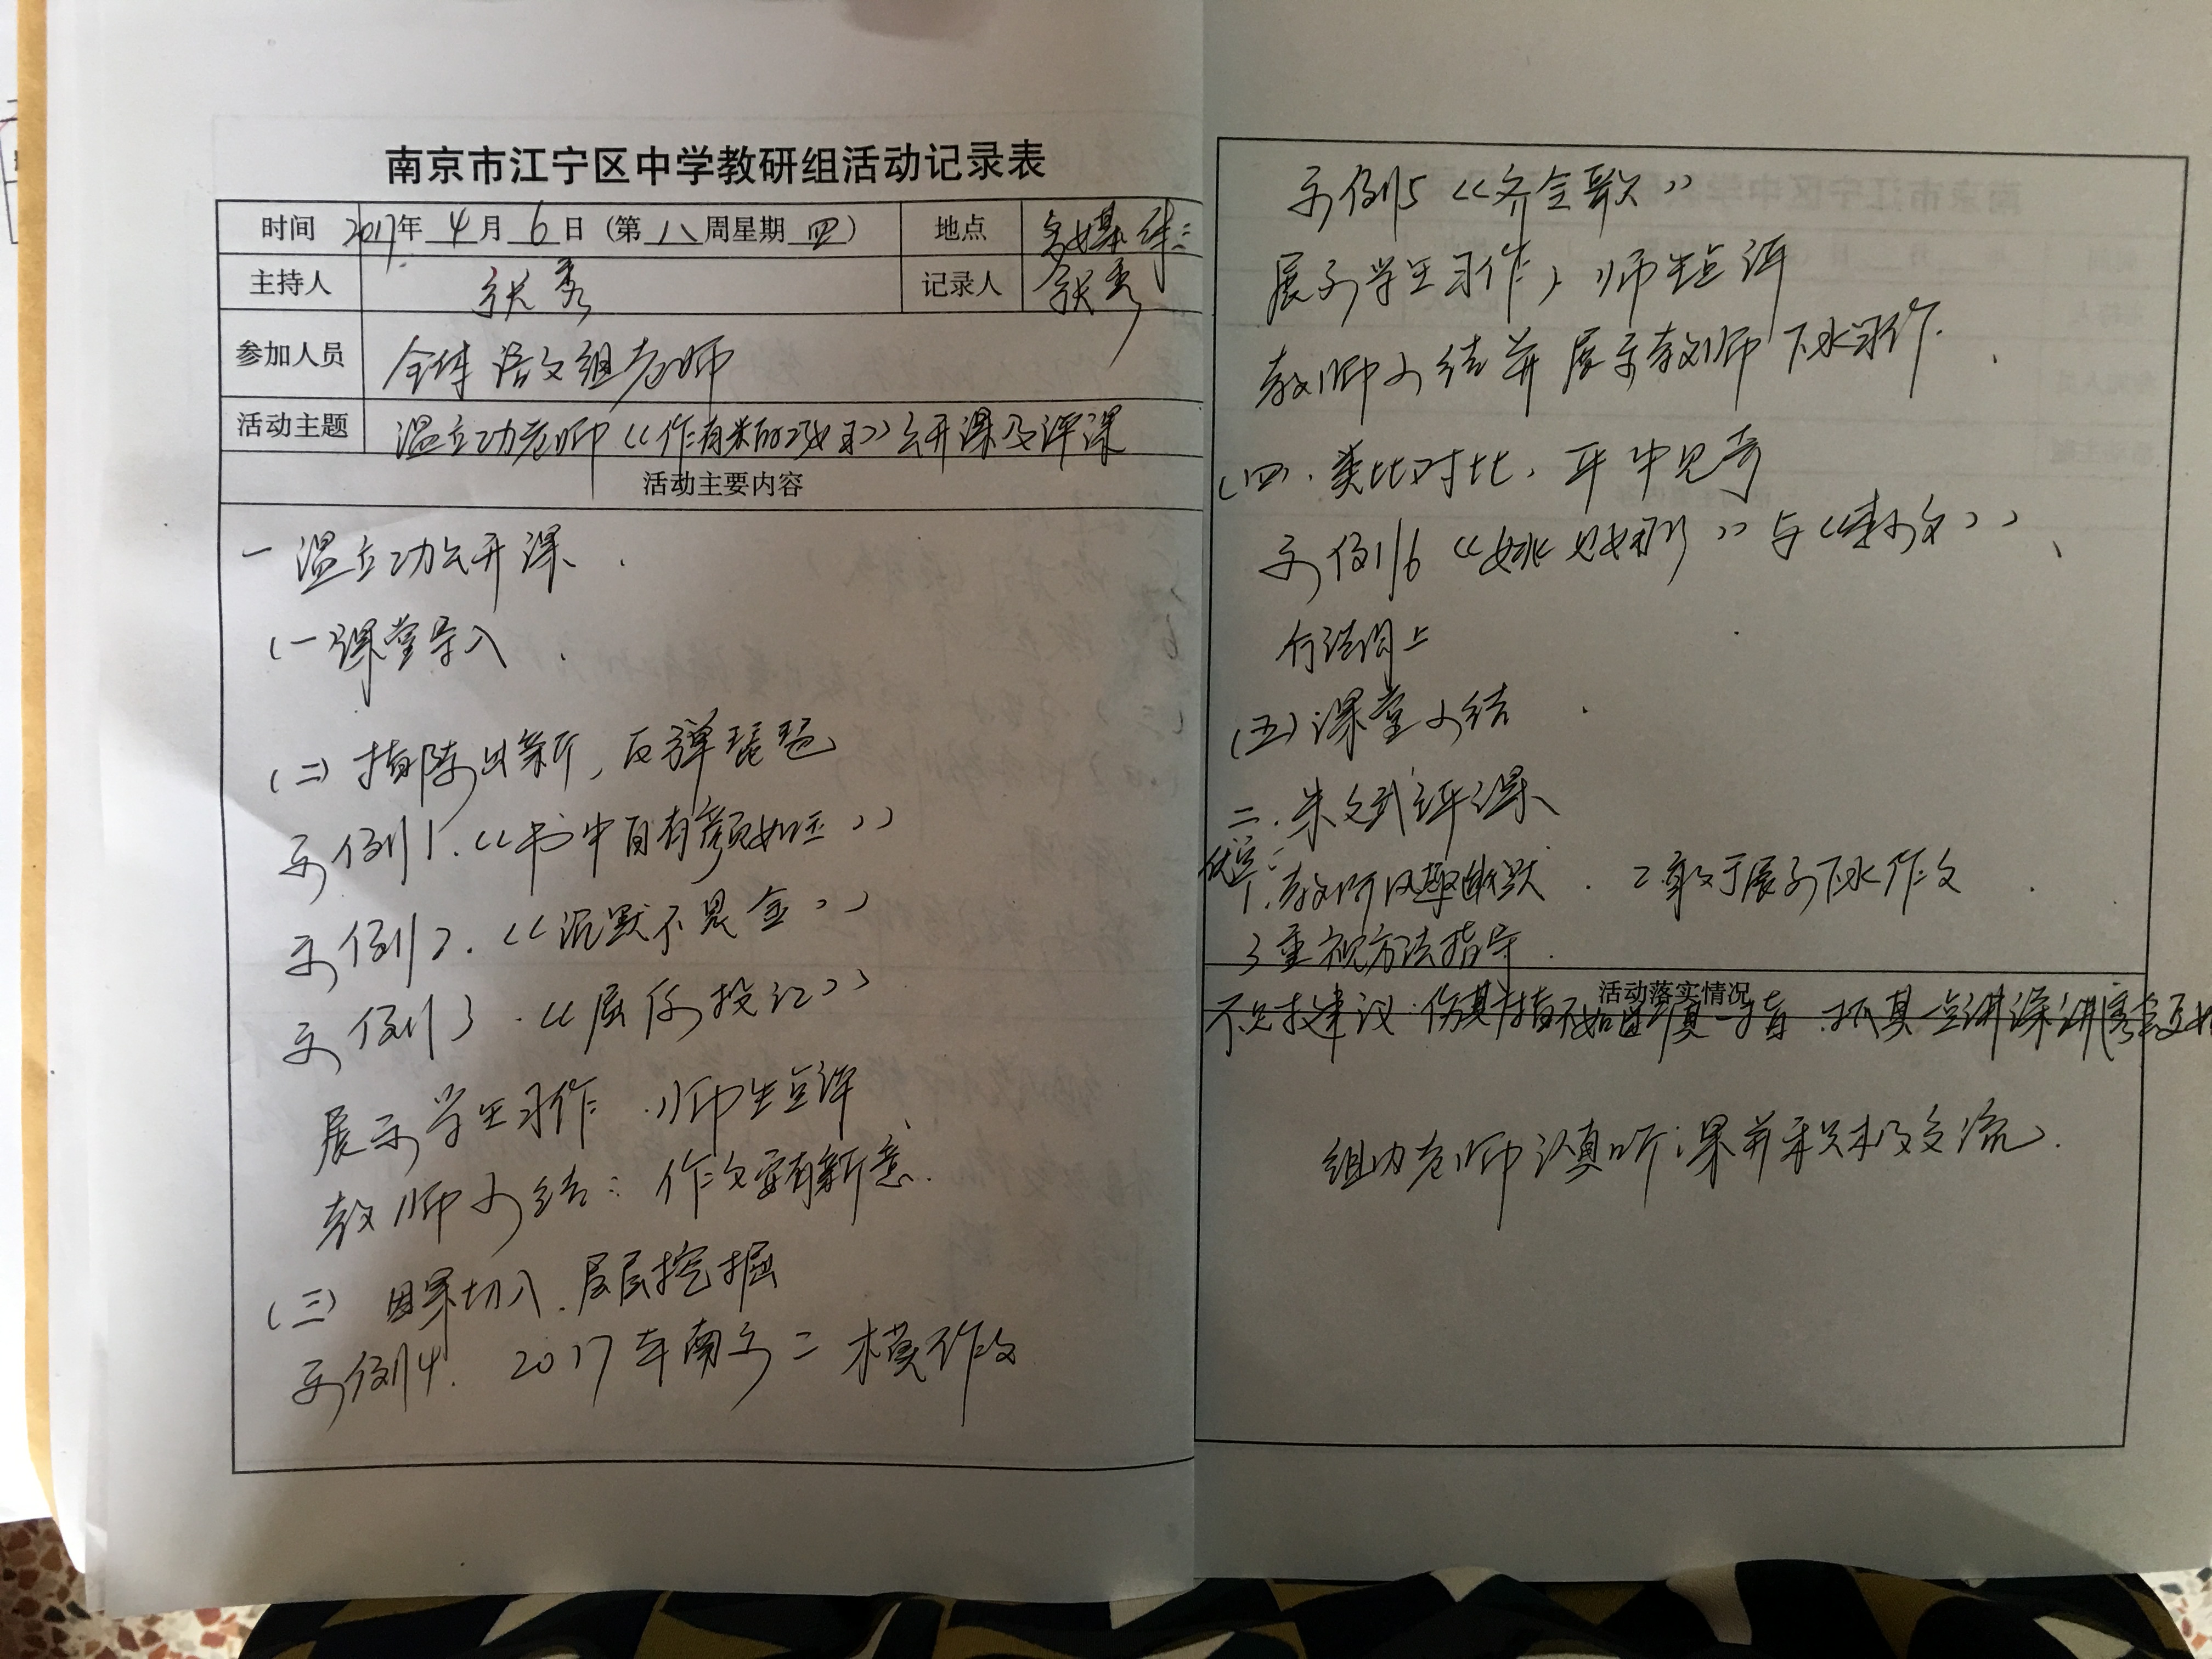 南京市江宁区中学教研组活动记录表
时间 2017年 4 月 6 日（第 八 周星期 四） 地点 多媒体二
主持人 张秀 记录人 张秀
参加人员 全体语文组老师
活动主题 温立功老师《作有米的巧妇》公开课及评课
活动主要内容
一 温立功公开课、
（一 课堂导入
（二）推陈出新，反弹琵琶
示例1.《书中自有颜如玉》
示例2.《沉默不是金》
示例3.《屈原投江》
展示学生习作，师生点评
教师小结：作文要有新意.
（三） 因果切入.层层挖掘
示例4. 2017年南京二模作文
示例5《齐奎歌》
展示学生习作，师生点评
教师小结并展示教师下水习作.
（四）.类比对比，平中见奇
示例6《 》与《 》
方法同上
（五）课堂小结
二.朱文武评课
优点：
1.教师风趣幽默. 2敢于展示下水作文.
3重视方法指导.
活动落实情况
不足于建议：伤其十指不如断其一指.抓其一点讲深讲
组内老师认真听课并积极交流.